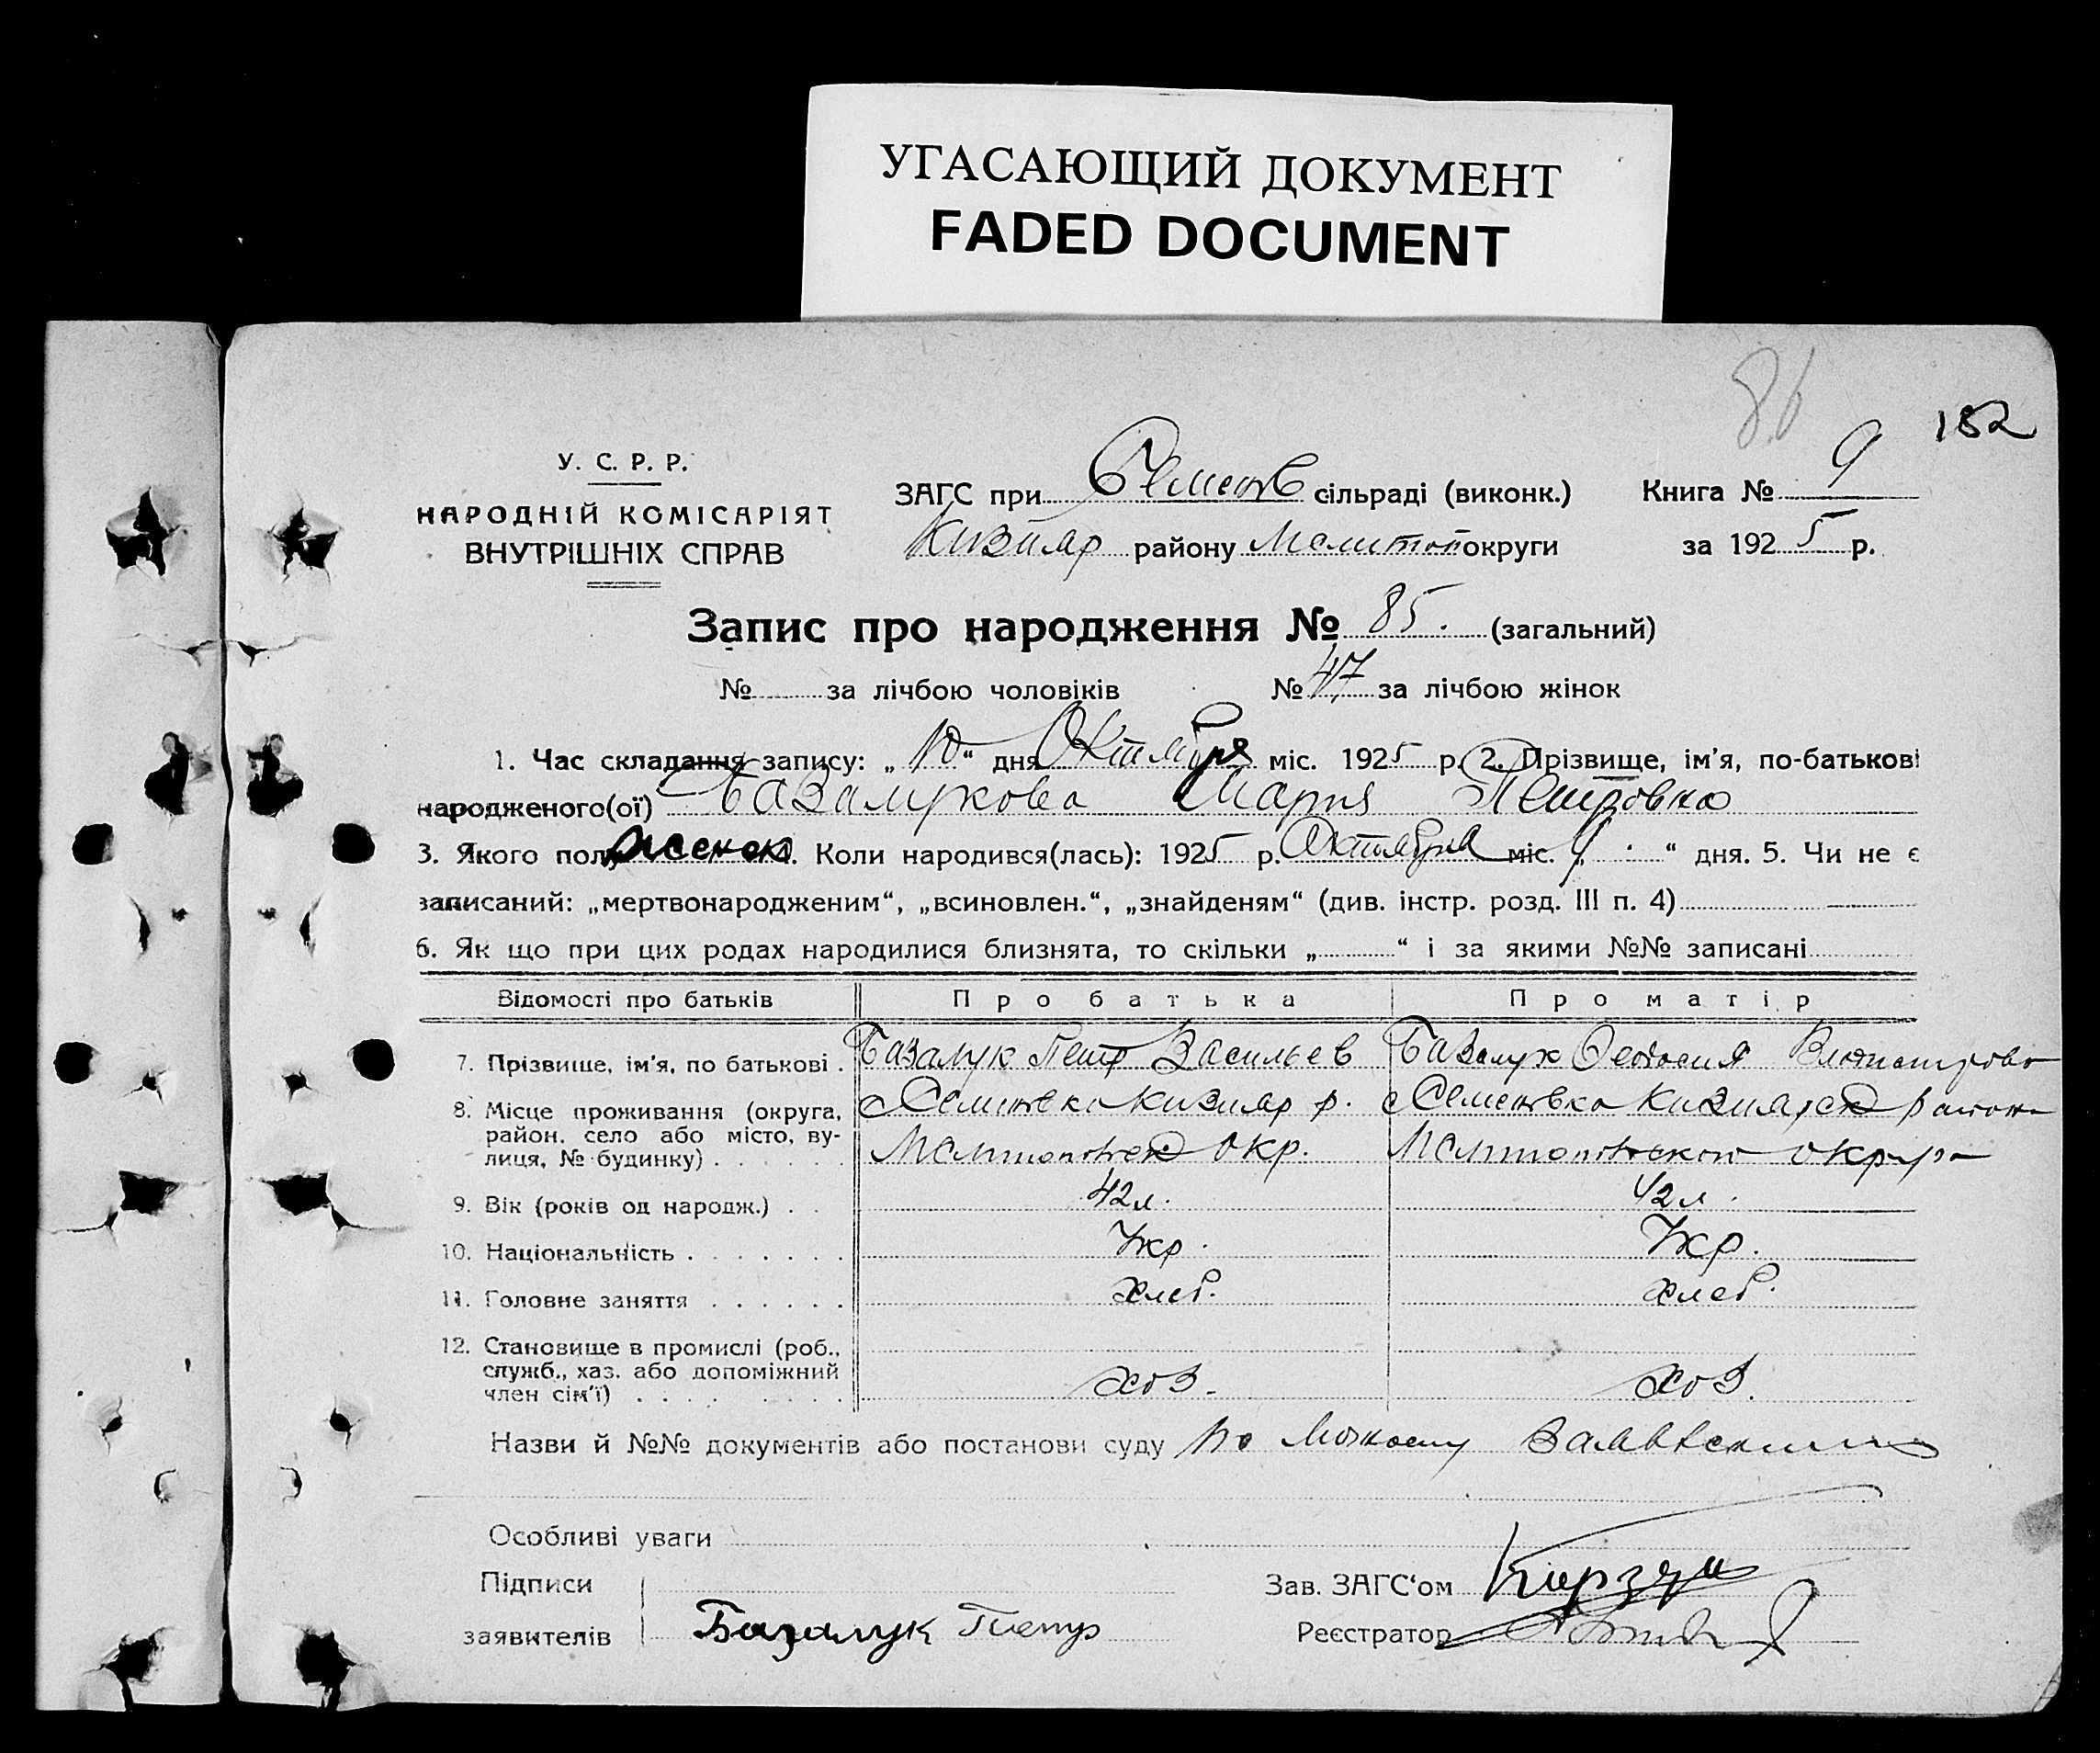 УГАСАЮЩИЙ ДОКУМЕНТ
FADED DOCUMENT
86
182
У. С. Р. Р.
НАРОДНІЙ КОМІСАРІЯТ
ВНУТРІШНІХ СПРАВ
ЗАГС при Семенов сільраді (виконк.) Книга № 9
Кизияр району Мелитоп округи за 1925 р.
Запис про народження № 85. (загальний)
№ за лічбою чоловіків № 47 за лічбою жінок
1. Час складання запису: „10“ дня Октября міс. 1925 р. 2. Прізвище, ім'я, по-батькові
народженого(ої) Базалукова Мария Петровна
3. Якого полу женск. Коли народився(лась): 1925 р. Октября міс. „9“ дня. 5. Чи не є
записаний: „мертвонародженим“, „всиновлен.“, „знайденям“ (див. інстр. розд. III п. 4)
6. Як що при цих родах народилися близнята, то скільки „ “ і за якими №№ записані
Відомості про батьків Про батька Про матір
7. Прізвище, ім'я, по батькові . Базалук Петр Васильев Базалук Феодосия
8. Місце проживання (округа, с Семеновка Кизияр р. с Семеновка Кизиярск района
район. село або місто, ву-
лиця, № будинку) . . . . . . Мелитопольск окр. Мелитопольской округа
9. Вік (років од народж.) . . 42 л. 42 л.
10. Національність . . . . . . . Укр. Укр.
11. Головне заняття . . . . . . хлеб. хлеб.
12. Становище в промислі (роб.,
служб., хаз. або допоміжний хоз. хоз.
член сім'ї) . . . . . . . .
Назви й №№ документів або постанови суду По личному заявлению
Особливі уваги
Підписи Зав. ЗАГС'ом
заявителів Базалук Петр Реєстратор